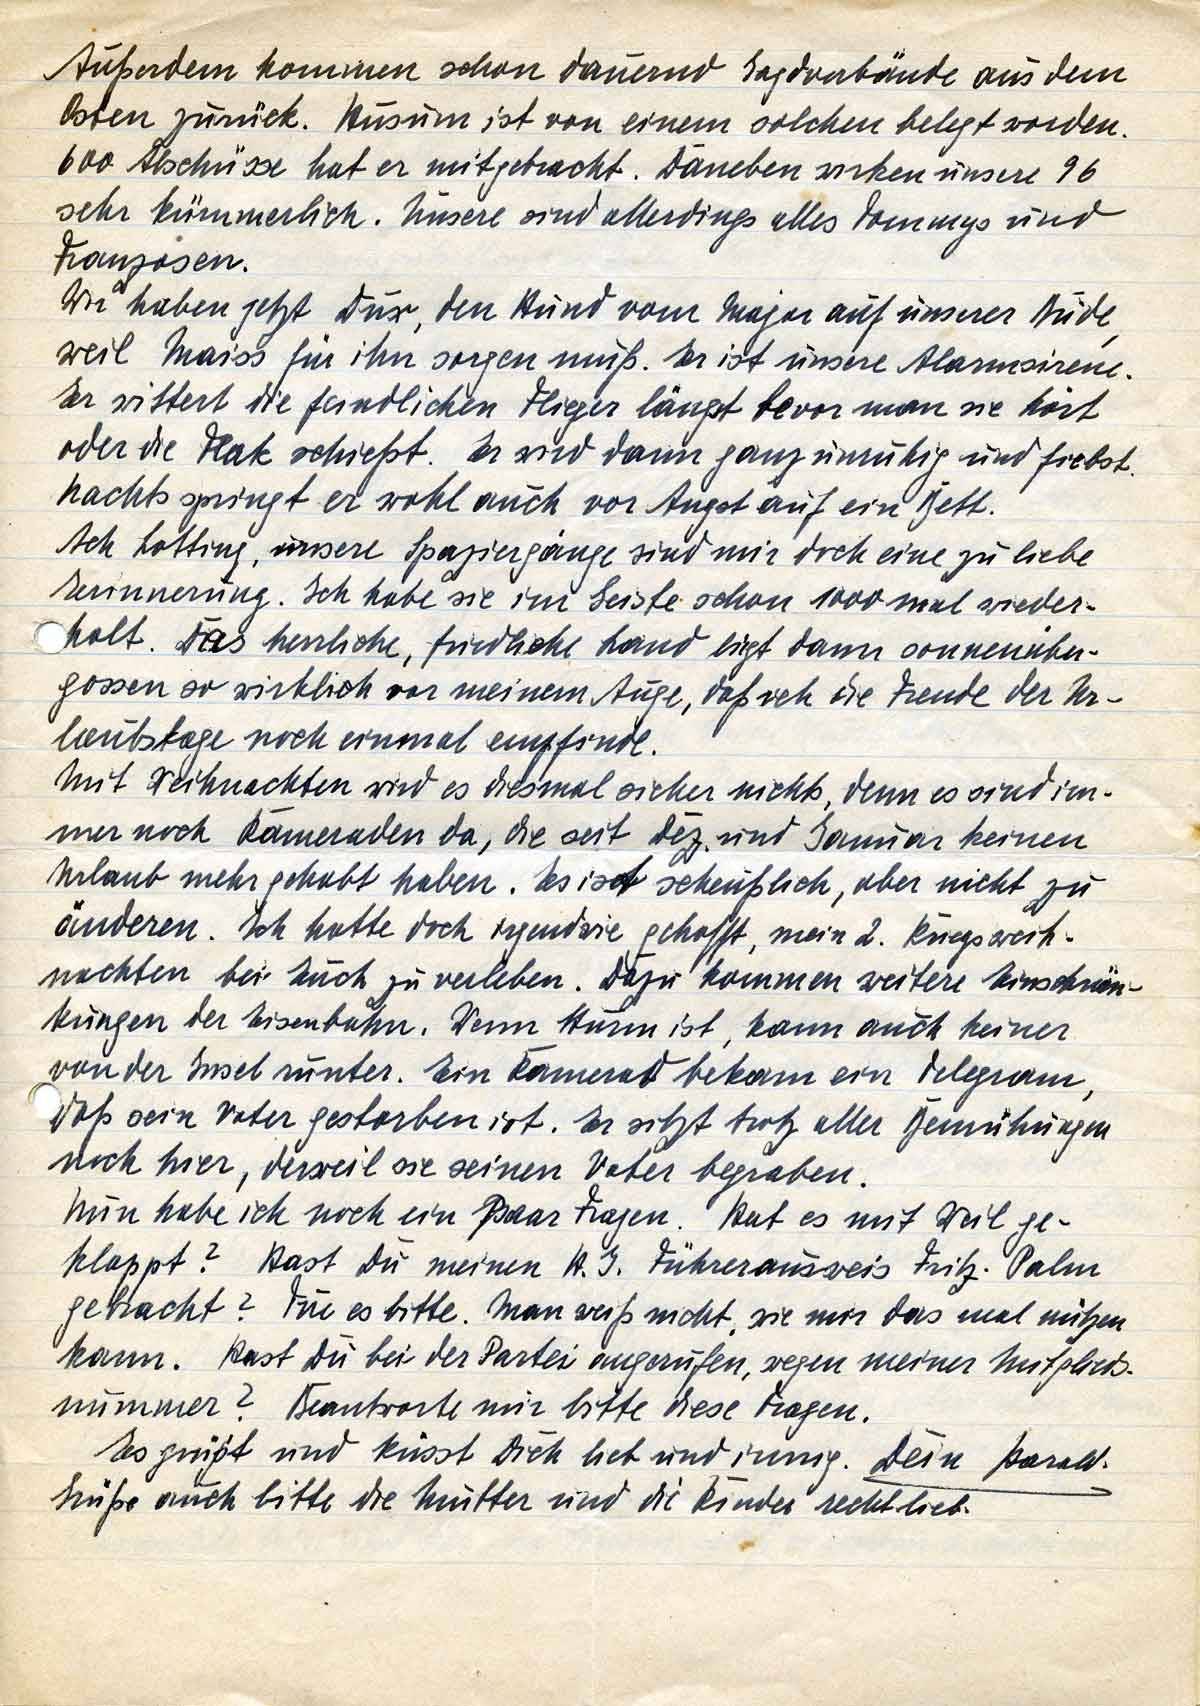 Außerdem kommen schon dauernd Jagdverbände aus dem
Osten zurück. Husum ist von einem solchen belegt worden.
600 Abschüsse hat er mitgebracht. Daneben wirken unsere 96
sehr kümmerlich. Unsere sind allerdings alles Tommys und
Franzosen.
Wir haben jetzt Dux, den Hund vom Major auf unserer Bude,
weil Maiss für ihn sorgen muß. Er ist unsere Alarmsirene.
Er wittert die feindlichen Flieger längst bevor man sie hört
oder die Flak schießt. Er wird dann ganz unruhig und fiebst.
Nachts springt er wohl auch vor Angst auf ein Bett.
Ach Lotting, unsere Spaziergänge sind mir doch eine zu liebe
Erinnerung. Ich habe sie im Geiste schon 1000 mal wieder-
holt. Das herrliche, friedliche Land liegt dann sonnenüber-
gossen so wirklich vor meinem Auge, daß ich die Freude der Ur-
laubstage noch einmal empfinde.
Mit Weihnachten wird es diesmal sicher nichts, denn es sind im-
mer noch Kameraden da, die seit Dez. und Januar keinen
Urlaub mehr gehabt haben. Es ist scheußlich, aber nicht zu
änderen. Ich hatte doch irgendwie gehofft, mein 2. Kriegsweih-
nachten bei Euch zu verleben. Dazu kommen weitere Einschrän-
kungen der Eisenbahn. Wenn Sturm ist, kann auch keiner
von der Insel runter. Ein Kamerad bekam ein Telegram,
daß sein Vater gestorben ist. Er sitzt trotz aller Bemühungen
noch hier, derweil sie seinen Vater begraben.
Nun habe ich noch ein Paar Fragen. Hat es mit Weil ge-
klappt? Hast Du meinen H.J. Führerausweis Fritz Palm
gebracht? Tue es bitte. Man weiß nicht, wie mir das mal nützen
kann. Hast Du bei der Partei angerufen, wegen meiner Mitglieds-
nummer? Beantworte mir bitte diese Fragen.
Es grüßt und küsst Dich lieb und innig. Dein Harald.
Grüße auch bitte die Mutter und die Kinder recht lieb.